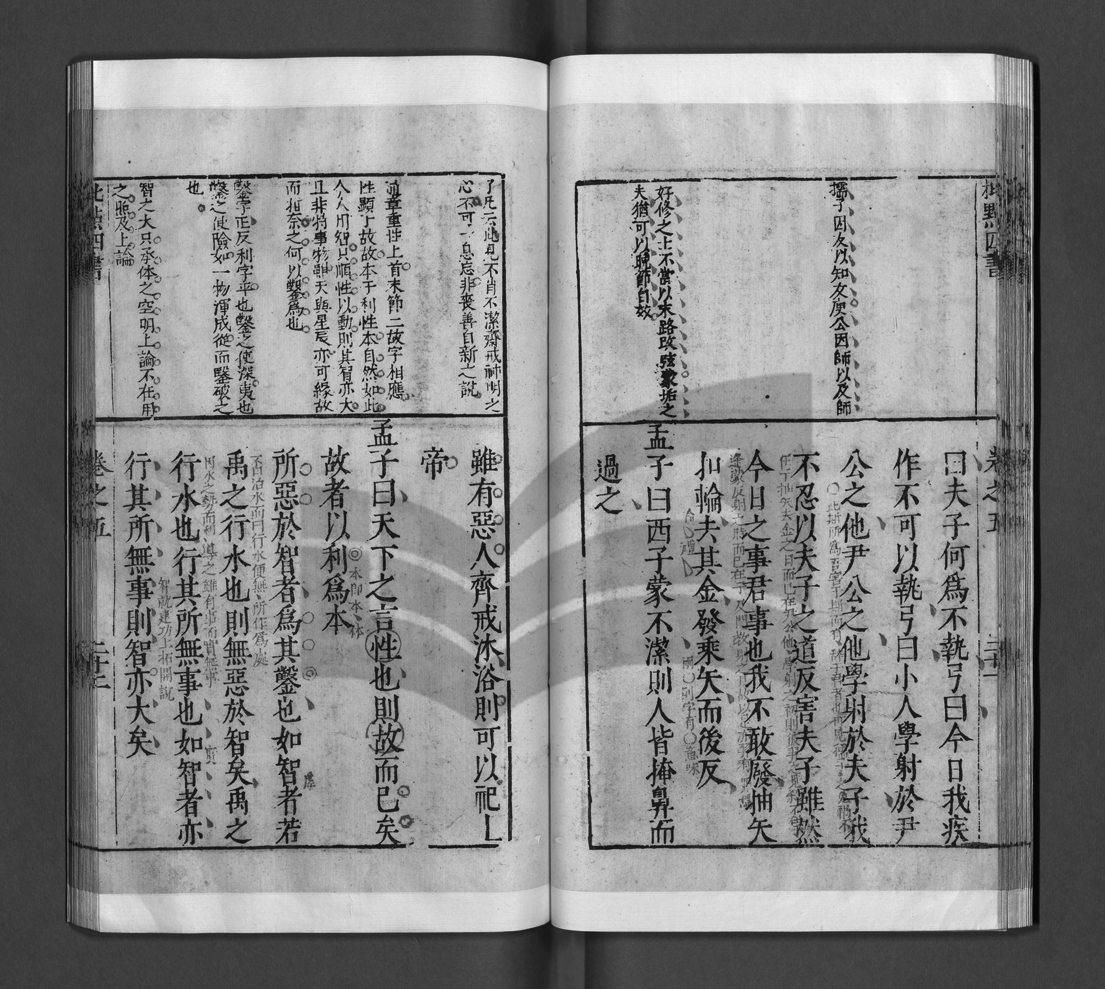 批點四書
卷之五
二十一
孺子因友以知友庾公因師以及師
好修之士不當以末路改弦蒙垢之
夫猶可以晚節自妝
曰夫子何為不執弓曰今日我疾
作不可以執弓曰小人學射於尹
公之他尹公之他學射於夫子我
不忍以夫子之道反害夫子雖然
今日之事君事也我不敢廢抽矢
扣輪去其金發乘矢而後反
孟子曰西子蒙不潔則人皆掩鼻而
過之
了凡云乍見不肖不潔齋戒神明之
心不可一息忘非喪善自新之說
通章重性上首末節二故字相應
性顯于故故本于利性本自然如此
人人用智只順性以動則其智亦大
且非特事物耳天與星辰亦可緣故
而推奈之何以鑿為也
鑿字正反利字平也鑿之使深夷也
鑿之使險如一物渾成從而鑿破之
也
智之大只承体之空明上論不在用
之照及上論
雖有惡人齊戒沐浴則可以祀上
帝
孟子曰天下之言性也則故而已矣
故者以利為本
本即本体
所惡於智者為其鑿也如智者若
禹之行水也則無惡於智矣禹之
不曰治水而曰行水便無所作為處
行水也行其所無事也如智者亦
行其所無事則智亦大矣
智就建功上拓開說
批點四書
卷之五
二十二